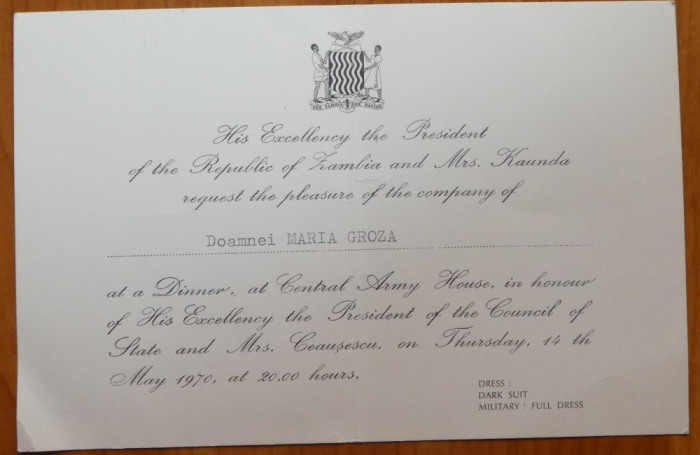 ONE ZAMBIA ONE NATION
His Excellency the President
of the Republic of Zambia and Mrs. Kaunda
request the pleasure of the company of
Doamnei MARIA GROZA
at a Dinner, at Central Army House, in honour
of His Excellency the President of the Council of
State and Mrs. Ceauşescu, on Thursday, 14 th
May 1970, at 20.00 hours.
DRESS :
DARK SUIT
MILITARY : FULL DRESS